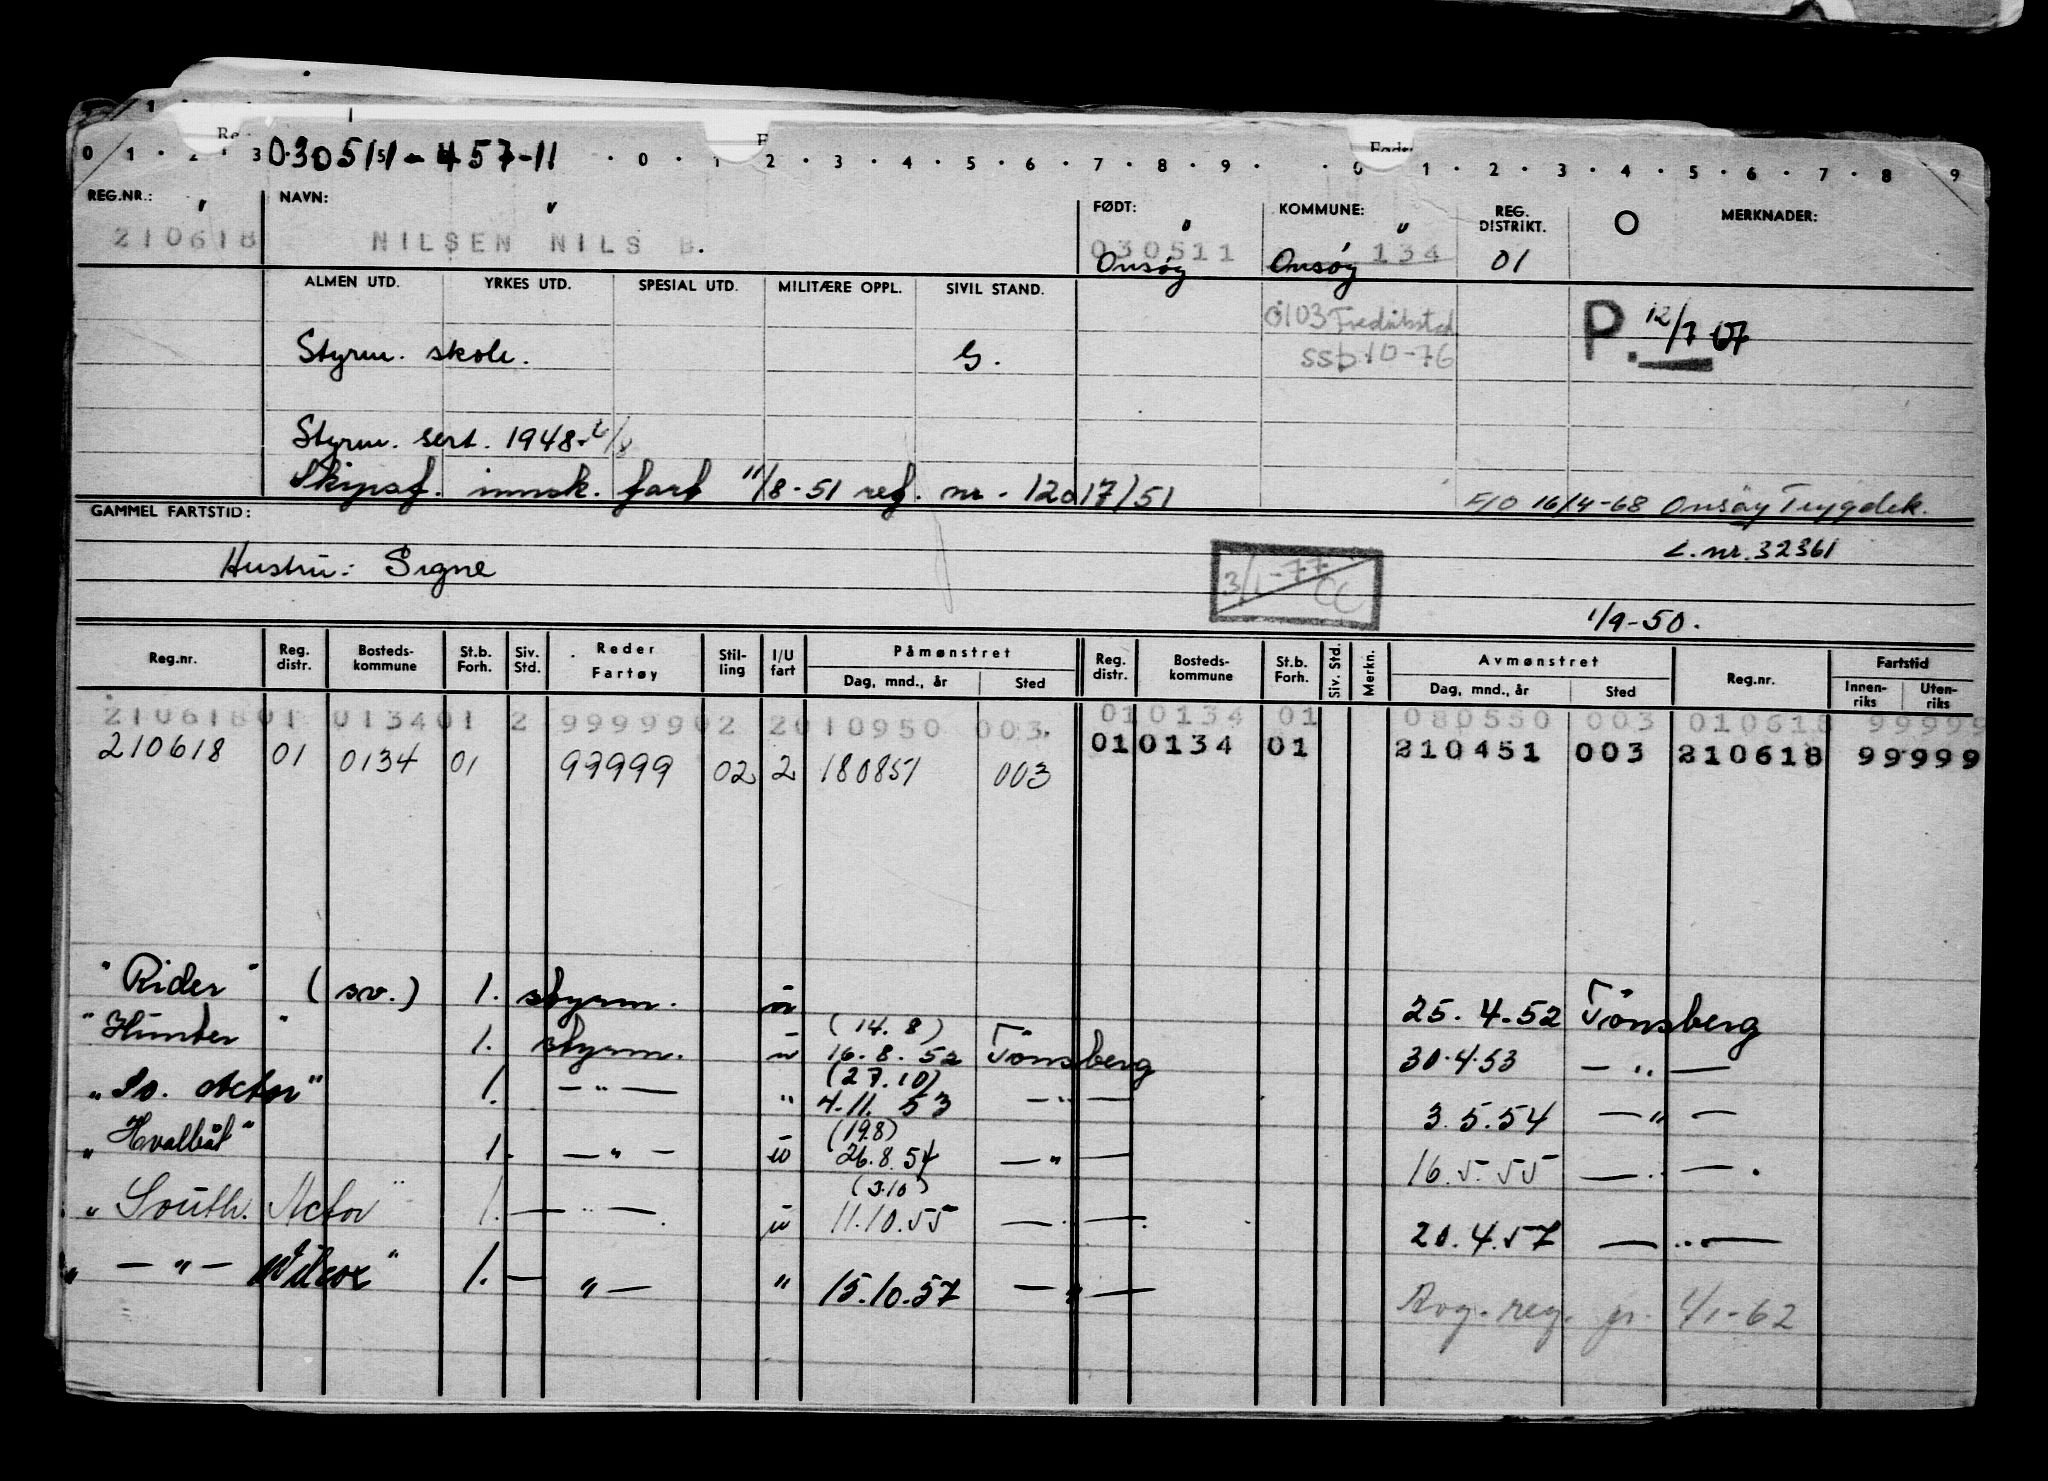 030511-457-11
0 1 2 3 5 0 1 2 3 4 5 6 7 8 9 0 1 2 3 4 5 6 7 8 9
REG.NR.: NAVN: FØDT: KOMMUNE: REG. DISTRIKT. O MERKNADER:
210618 NILSEN NILS B. 030511 134
Onsøy Onsøy 01
ALMEN UTD. YRKES UTD. SPESIAL UTD. MILITÆRE OPPL. SIVIL STAND.
0103 Fredrikstad
Styrm. skole. G. ssb 10-76 P. 12/7 67
Styrm. sert. 1948
Skipsf. innsk. fart 11/8-51 ref. nr. 12017/51
16/4-68 Onsøy Trygdek.
GAMMEL FARTSTID:
L.nr. 32361
Hustru: Signe
3/1-77 CC
1/9-50.
Reg.nr. Reg. distr. Bosteds-kommune St.b. Forh. Siv. Std. Reder Fartøy Stil-ling I/U fart Påmønstret Dag, mnd., år Sted Reg. distr. Bosteds-kommune St.b. Forh. Siv. Std. Merkn. Avmønstret Dag, mnd., år Sted Reg.nr. Fartstid Innen-riks Uten-riks
210618 01 0134 01 2 99999 02 2 010950 003. 01 0134 01 080550 003 010618 99999
210618 01 0134 01 99999 02 2 180851 003 01 0134 01 210451 003 210618 99999
"Rider" (sv.) 1. styrm. u 25.4.52 Tönsberg
"Hunter" 1. styrm. u (14.8) 16.8.52 Tönsberg 30.4.53 — " —
"So. Actor" 1. — " — " (27.10) 4.11.53 — " — 3.5.54 — " —
"Hvalbåt" 1. — " — u (19.8) 26.8.54 — " — 16.5.55 — " —
"South. Actor" 1. — " — u (3.10) 11.10.55 — " — 20.4.57 — " —
" — " — Wilcox" 1. — " — " 15.10.57 — " —
Avg. reg. pr. 1/1-62